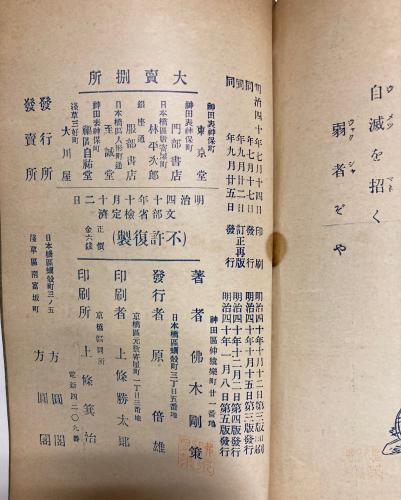 自滅を招く
弱者ぞや
明治四十年七月十四日印刷
同年七月十七日發行
同年九月二日訂正再版
同年九月廿五日發行
明治四十年十月十二日第三版印刷
明治四十年十月十五日第三版發行
明治四十年十二月二日第四版發行
明治四十一年一月八日第五版發行
大賣捌所
神田表神保町
東京堂
神田表神保町
門部書店
日本橋區
林平次郎
銀座通
服部書店
日本橋區人形町通
至誠堂
神田表神保町
自祐堂
淺草三好町
大川屋
明治四十年十二月二日
文部省檢定濟
(不許復製)
正價金六錢
著者 佛木剛策
日本橋區蠣殼町三丁目五番地
發行者 原倍雄
京橋區元數寄屋町一丁目三番地
印刷者 上條勝太郎
京橋區同所
印刷所 上條箕治
電話四二〇九番
發行所
日本橋區蠣殼町三ノ五
方圓閣
發賣所
淺草區南富坂町
方圓閣